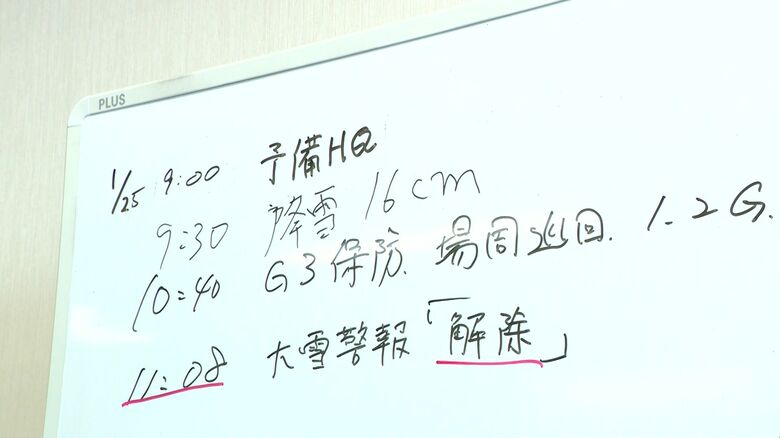 PLUS
1/25 9:00 予備HQ
9:30 降雪 16cm
10:40 G3保防、場周巡回、1.2G.
11:08 大雪警報「解除」